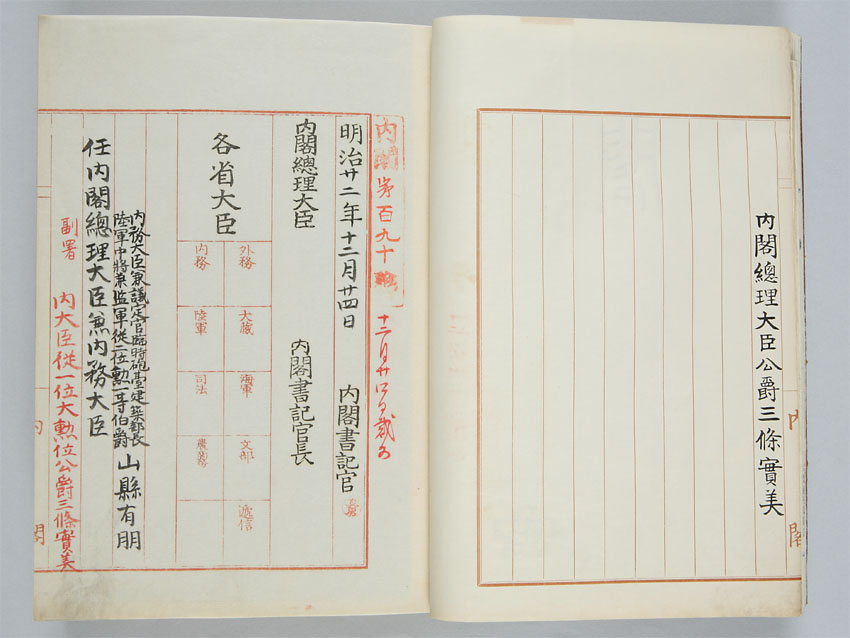 内閣總理大臣公爵三條實美
内閣
内閣第百九十
十二月廿四日裁可
明治廿二年十二月廿四日
内閣書記官
内閣總理大臣
内閣書記官長
各省大臣
外務
大藏
海軍
文部
遞信
内務
陸軍
司法
農商務
内務大臣兼議定官臨時砲臺建築部長
陸軍中將兼監軍從二位勲一等伯爵
山縣有朋
任内閣總理大臣兼内務大臣
副署
内大臣從一位大勲位公爵三條實美
内閣